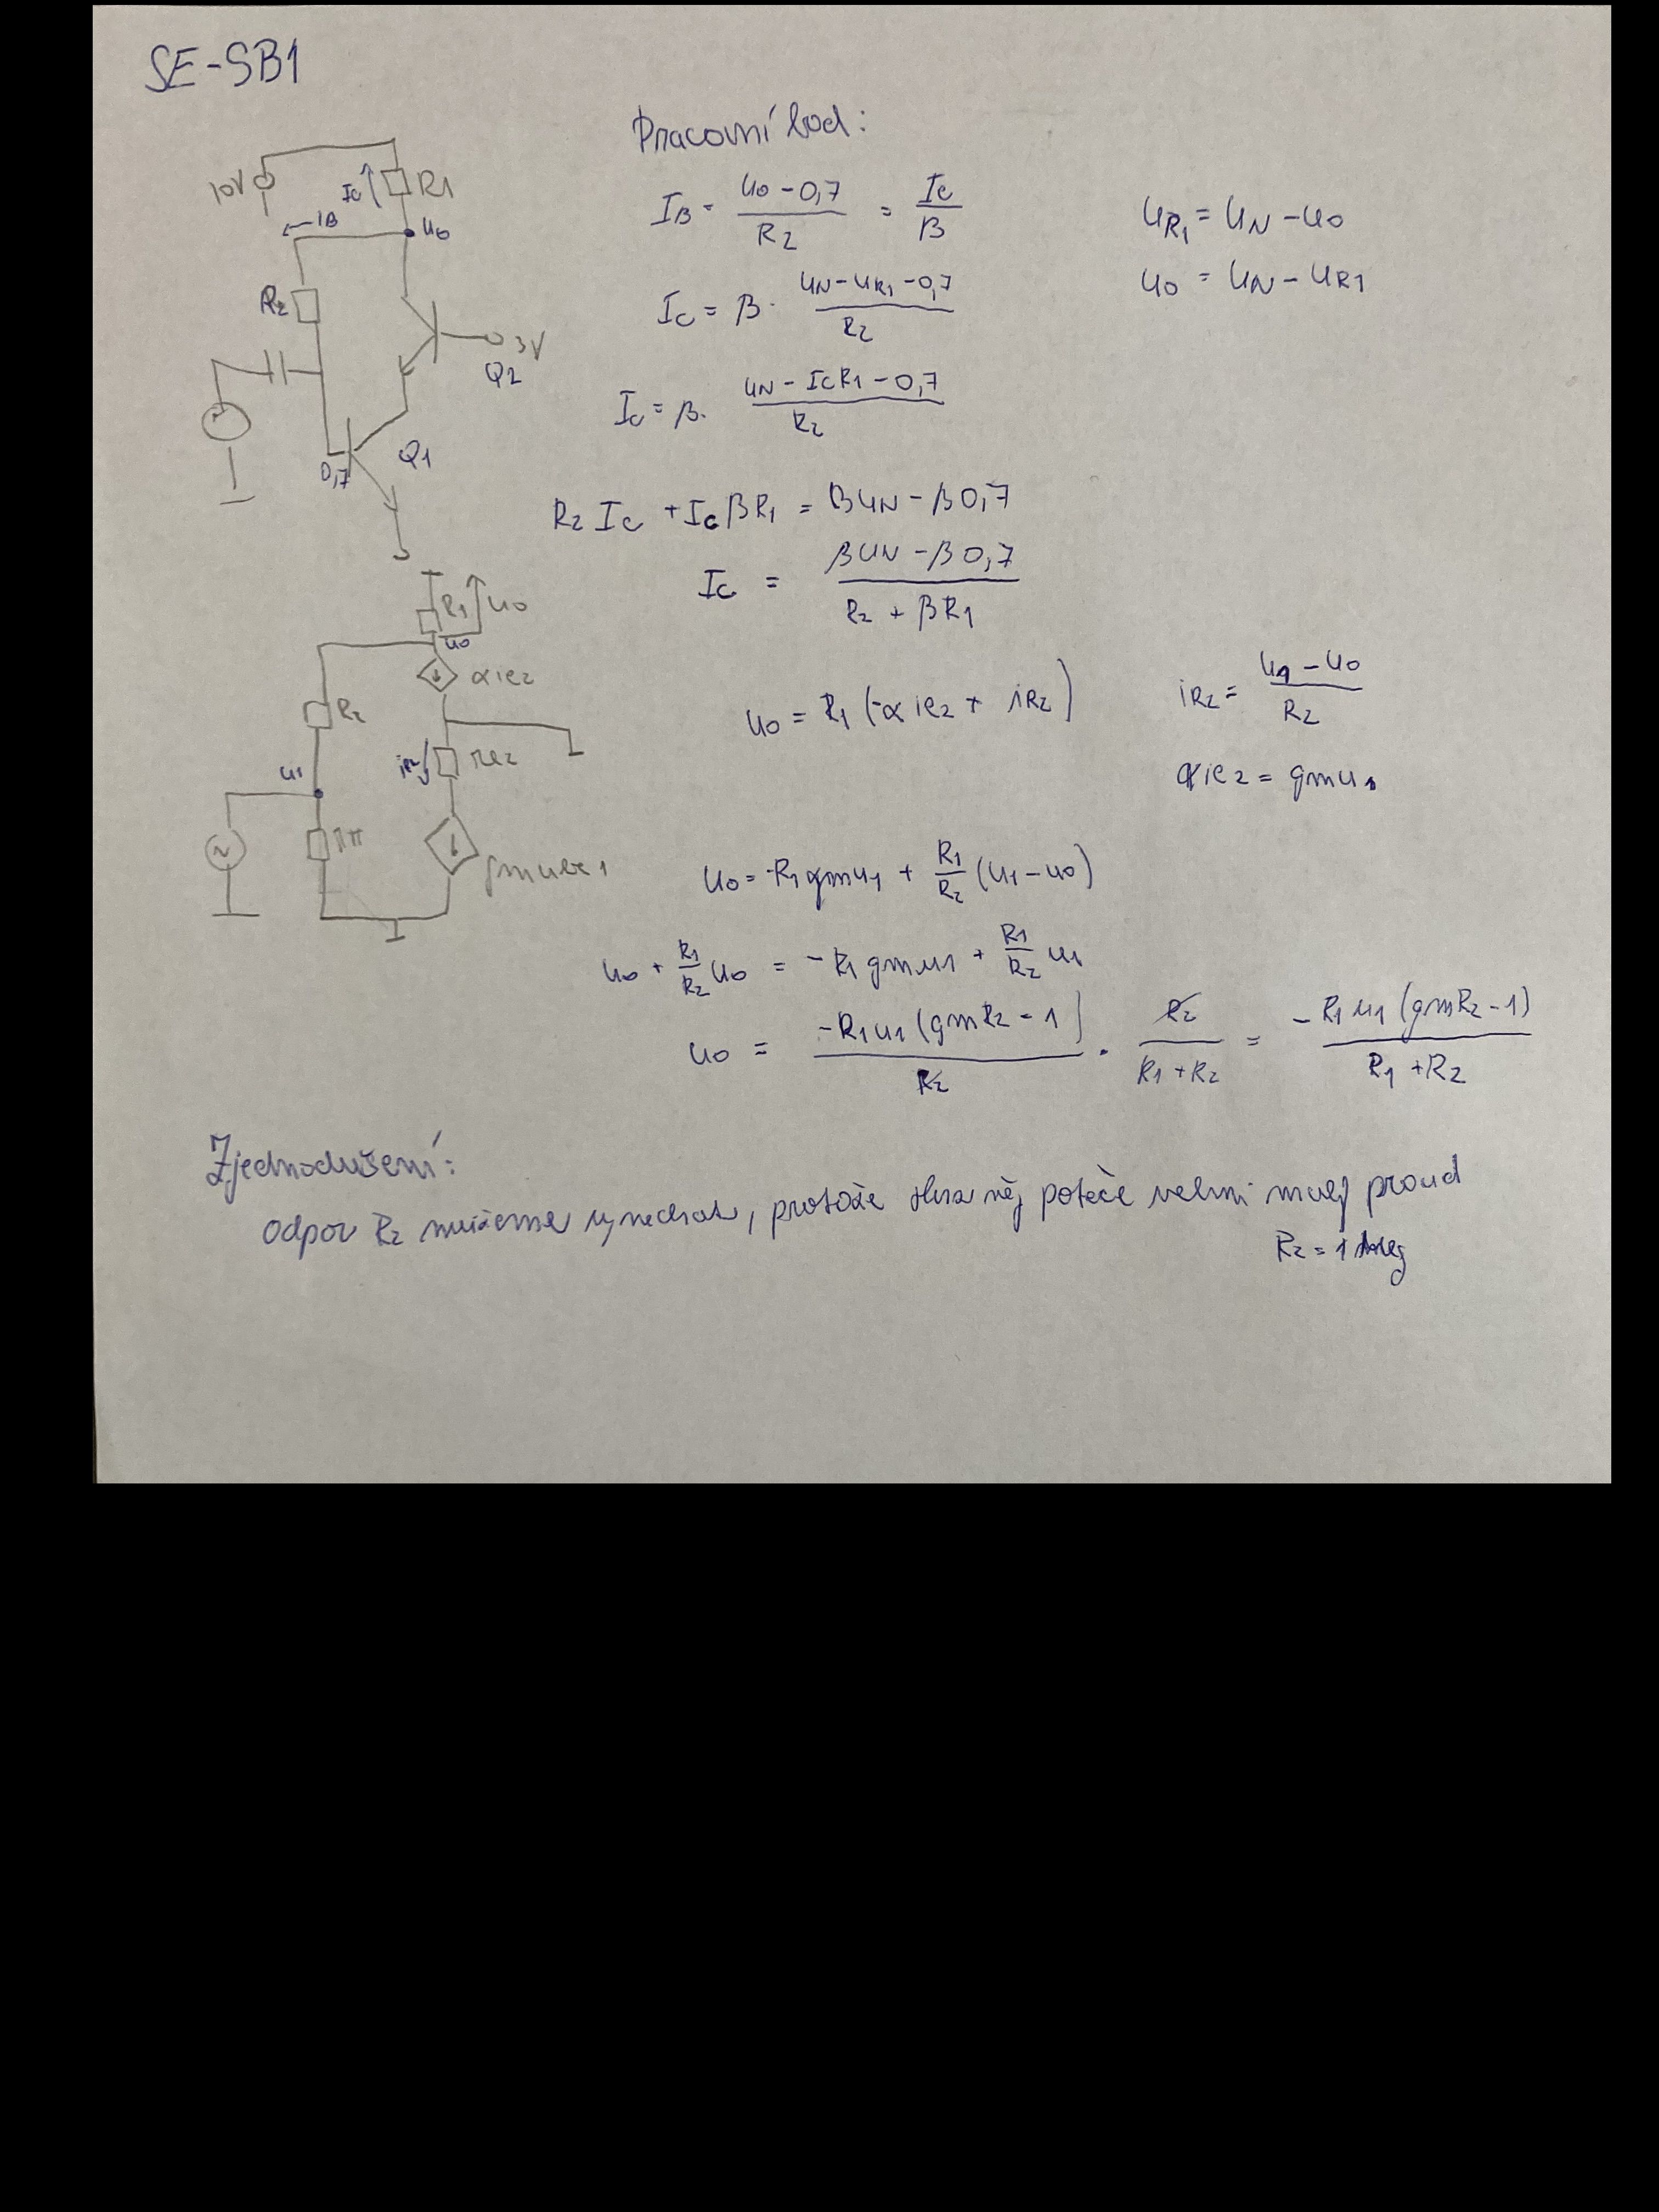 SE-SB1
Pracovní bod:
10V
Ic
R1
IB
u0
R2
3V
Q2
Q1
0,7
IB = (u0 - 0,7) / R2 = Ic / β
uR1 = uN - u0
u0 = uN - uR1
Ic = β · (uN - uR1 - 0,7) / R2
Ic = β · (uN - IcR1 - 0,7) / R2
R2 Ic + Ic β R1 = βuN - β0,7
Ic = (βuN - β0,7) / (R2 + βR1)
R1
u0
u0
αie2
R2
re2
u1
rπ
gmube1
u0 = R1 (-αie2 + iR2)
iR2 = (u1 - u0) / R2
αie2 = gmu1
u0 = -R1gmu1 + R1/R2 (u1 - u0)
u0 + R1/R2 u0 = -R1gmu1 + R1/R2 u1
u0 = -R1u1(gmR2 - 1) / R2 · R2 / (R1 + R2) = -R1u1(gmR2 - 1) / (R1 + R2)
Zjednodušení:
Odpor R2 můžeme vynechat, protože skrz něj poteče velmi malý proud
R2 = 1 Meg